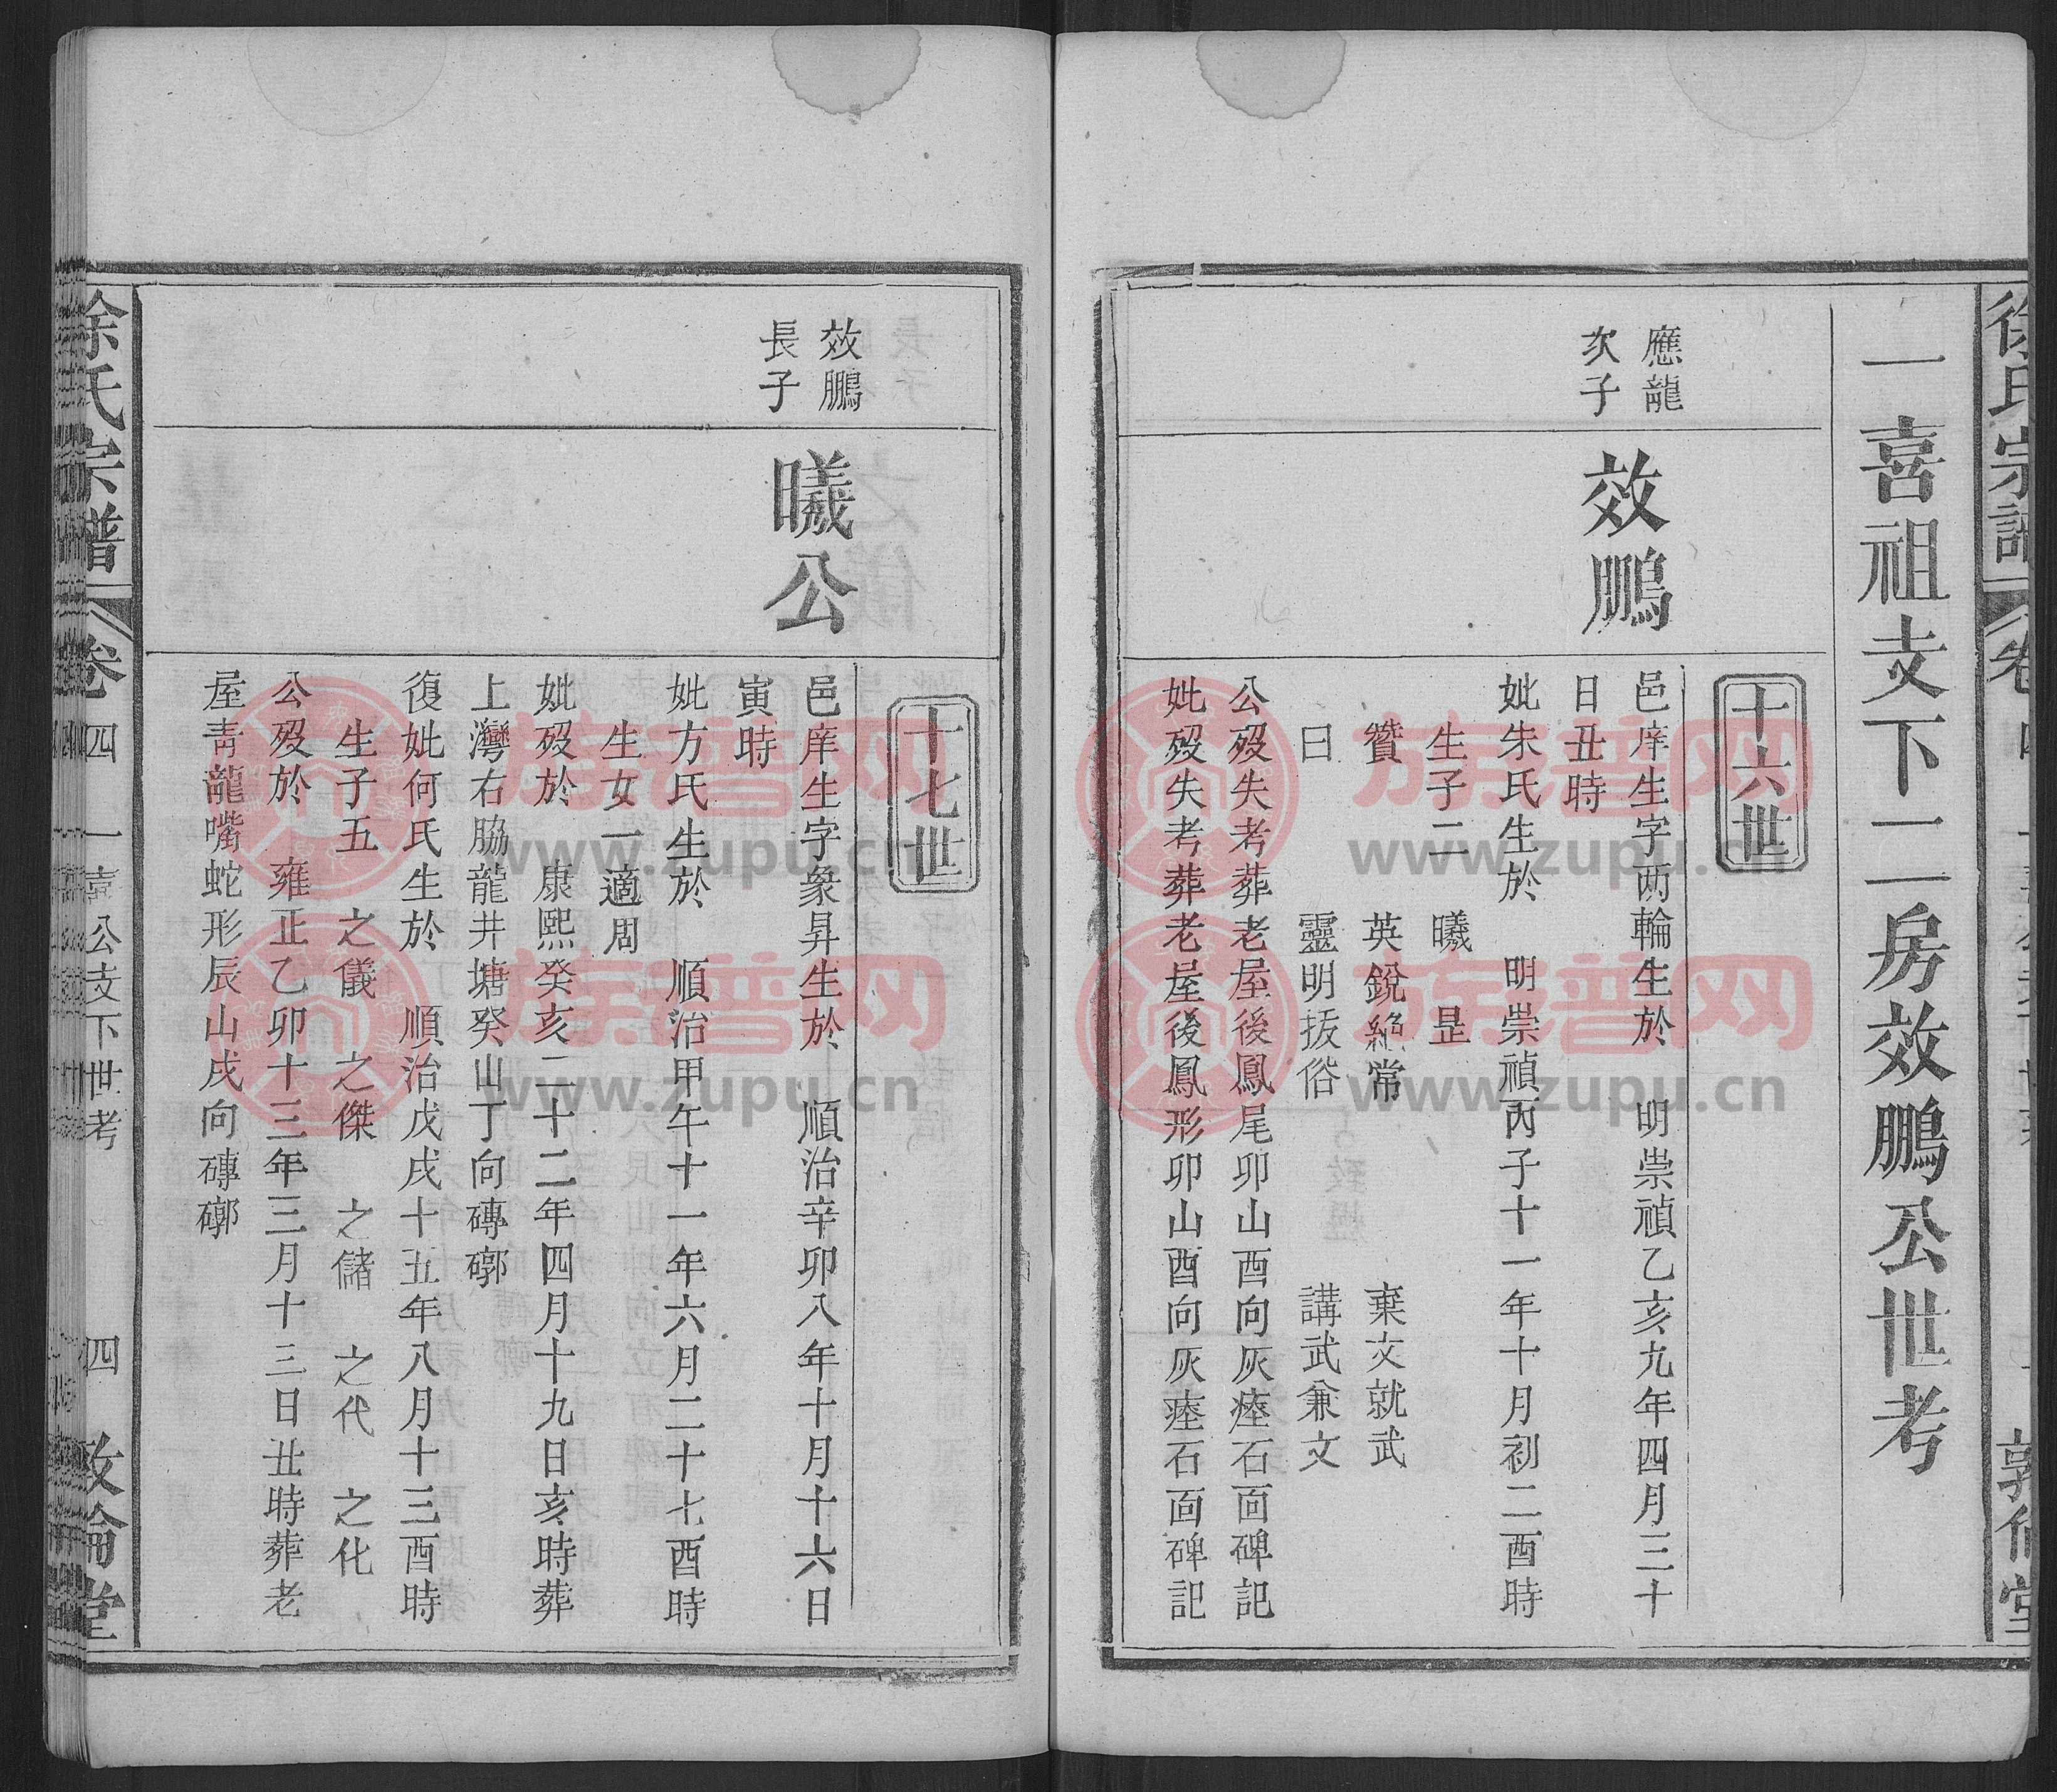 徐氏宗譜
卷四
敦倫堂
一喜祖支下二房效鵬公世考
十六世
應龍
次子
效鵬
邑庠生字两輪生於　明崇禎乙亥九年四月三十
日丑時
妣朱氏生於　明崇禎丙子十一年十月初二酉時
生子二　曦　昰
贊　英銳絕常　棄文就武
曰　靈明拔俗　講武兼文
公歿失考葬老屋後鳳尾卯山酉向灰瘞石面碑記
妣歿失考葬老屋後鳳形卯山酉向灰瘞石面碑記
十七世
效鵬
長子
曦公
邑庠生字象昇生於　順治辛卯八年十月十六日
寅時
妣方氏生於　順治甲午十一年六月二十七酉時
生女一適周
妣歿於　康熙癸亥二十二年四月十九日亥時葬
上灣右脇龍井塘癸山丁向磚槨
復妣何氏生於　順治戊戌十五年八月十三酉時
生子五　之儀　之傑　之儲　之代　之化
公歿於　雍正乙卯十三年三月十三日丑時葬老
屋靑龍嘴蛇形辰山戌向磚槨
徐氏宗譜
卷四　一喜公支下世考　四　敦倫堂
族譜网
www.zupu.cn
族譜网
www.zupu.cn
族譜网
www.zupu.cn
族譜网
www.zupu.cn